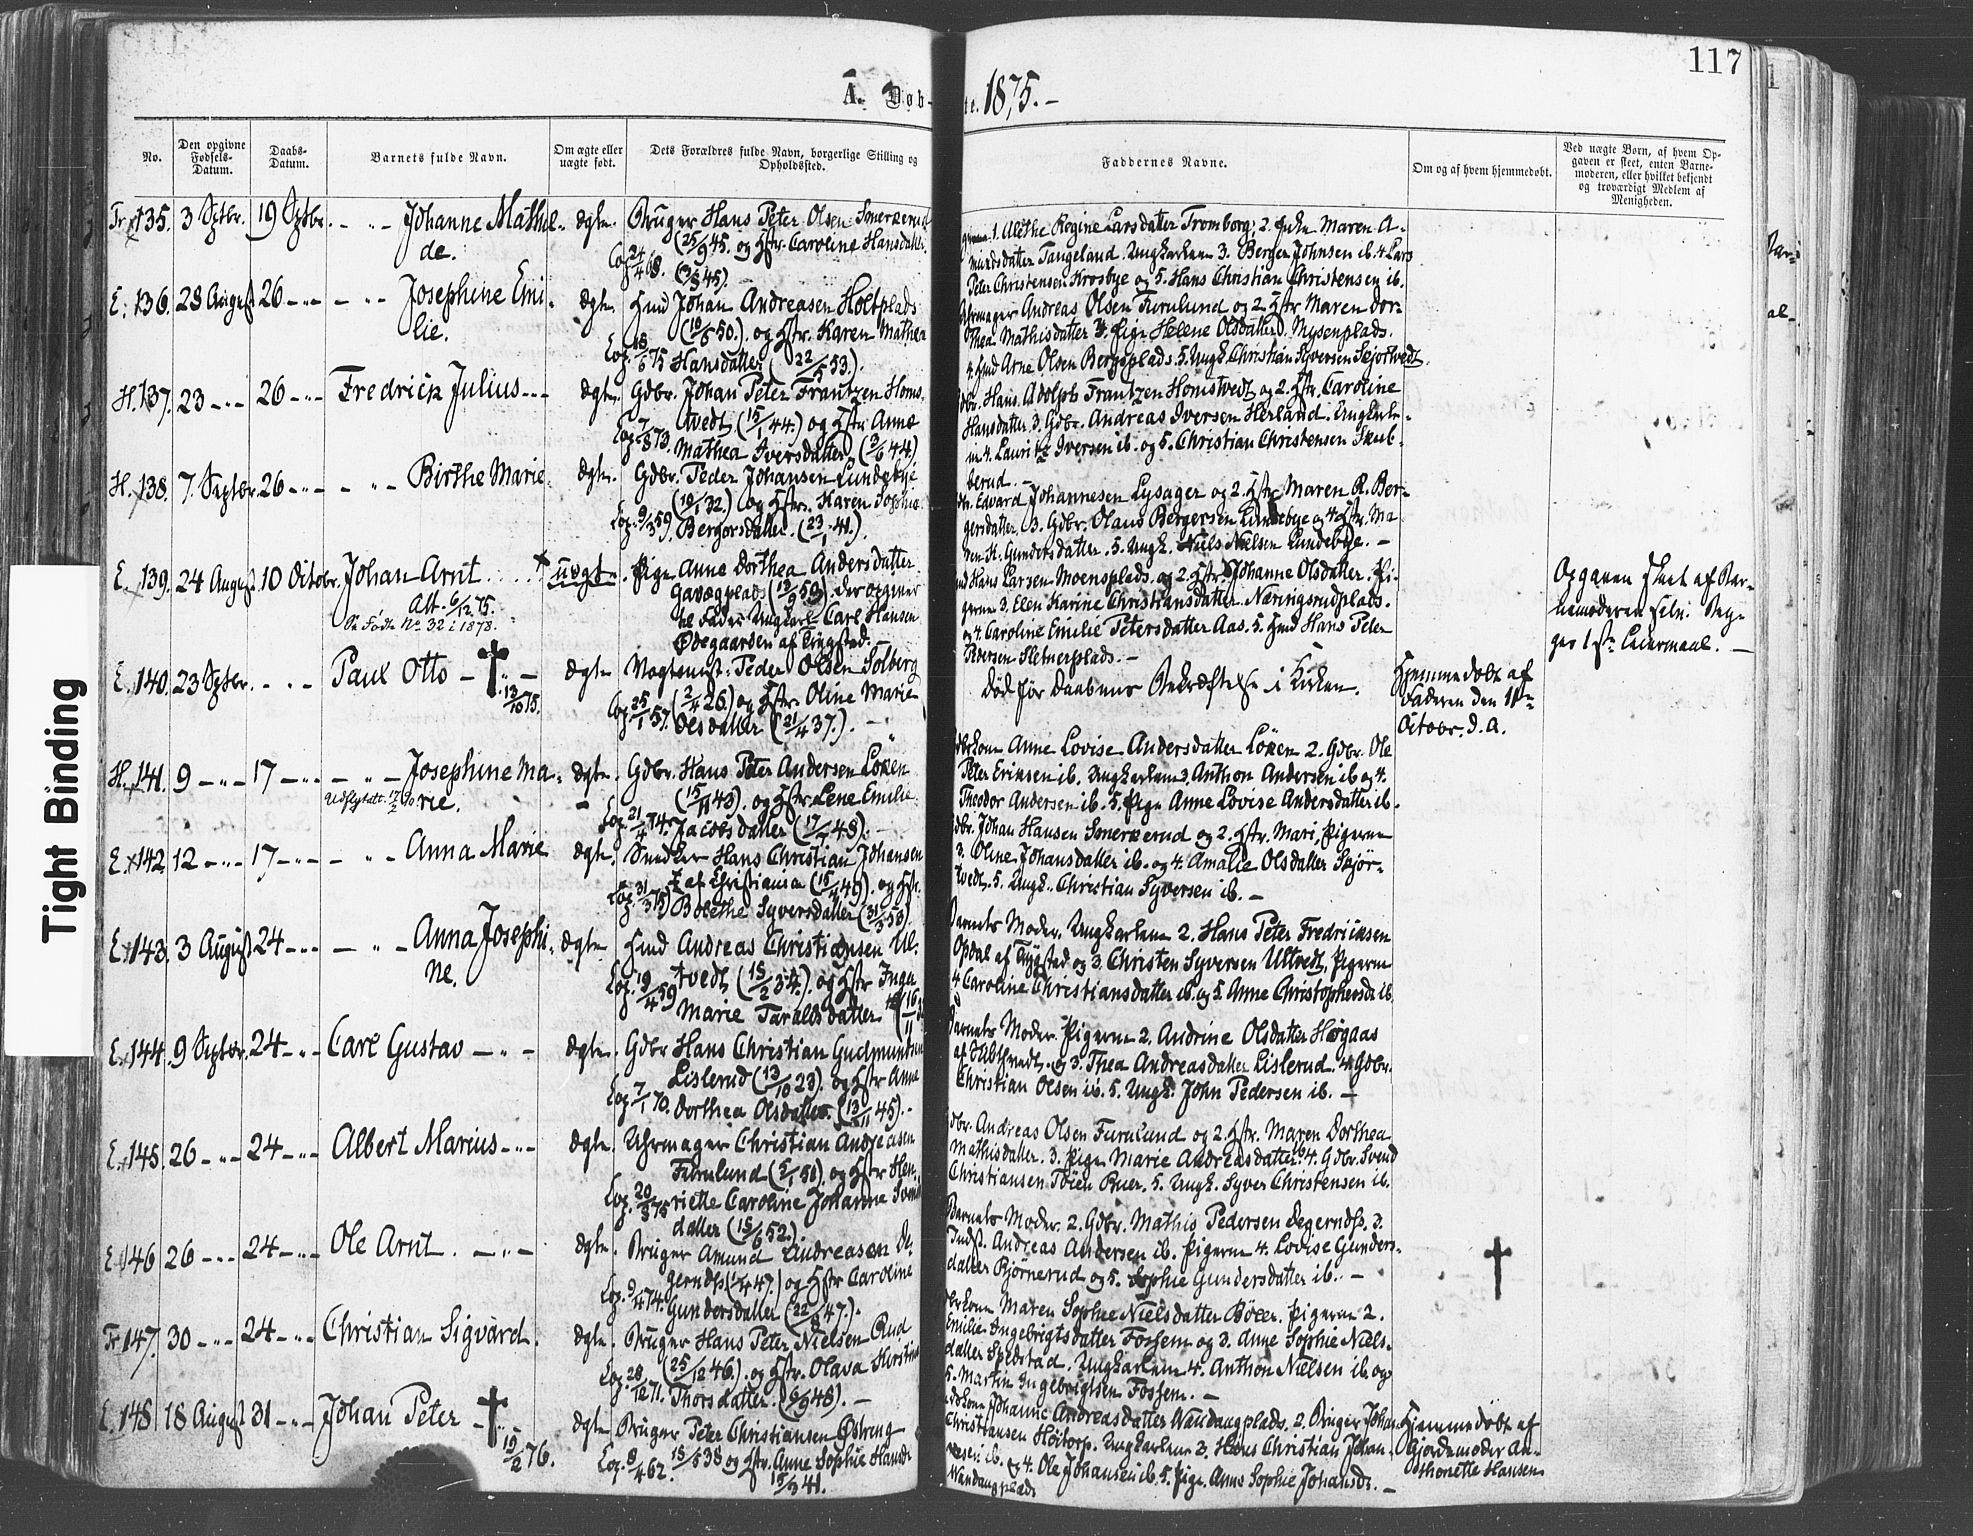 117
A. Døb-
te. 1875. -
No.
Den opgivne Fødsels-Datum.
Daabs-Datum.
Barnets fulde Navn.
Om ægte eller uægte født.
Dets Forældres fulde Navn, borgerlige Stilling og Opholdssted.
Faddernes Navne.
Om og af hvem hjemmedøbt.
Ved uægte Børn, af hvem Opgaven er skeet, enten Barnemoderen, eller hvilket bekjendt og troværdigt Medlem af Menigheden.
Tight Binding
135. 3 Septbr. 19 Septbr. - " - Johanne Mathil-
de.
ægte. Bruger Hans Peter Olsen Sonerkerud
(25/9 45. og Hstr. Caroline Hansdatter
Cop. 24/4 68. 45).
1. Alethe Regine Larsdatter Tromborg, 2. Maren A-
mundsdatter Tangeland. Ungkarlene 3. Bergen Johnsen ib. 4. Lars
Peter Christensen Krosbye og 5. Hans Christian Christensen ib.
E. 136. 28 August 26 - " - - " - Josephine Emi-
lie.
ægte. Hmd Johan Andreasen Holtplads
(10/6 50.). og Hstr. Karen Mathea
Cop. 18/6 75 Hansdatter (22/5 53.).
Uhrmager Andreas Olsen Furulund og 2. Hstr Maren Dor-
thea Mathisdatter 3. Pige Helene Olsdatter Mysenplads.
4. Hmd Arne Olsen Bergsplads. 5. Ungk. Christian Syversen Skjortvedt
H. 137. 23 - " - 26 - " - Fredrick Julius - " -
ægte. Gdbr. Johan Peter Frantzen Homs-
tvedt (15/1 44.) og Hstr Anne
Cop. 7/8 73. Mathea Iversdatter (2/6 44.)
Gdbr. Hans Adolph Frantzen Homstvedt og 2. Hstr. Caroline
Hansdatter. 3. Gdbr. Andreas Iversen Herland. Ungkarle-
ne 4. Lauritz Iversen ib. og 5. Christian Christensen Skub-
berud. -
H. 138. 7. Septbr. 26 - " - - " - Birthe Marie
ægte. Gdbr. Peder Johansen Lundebye
(10/1 32.) og Hstr. Karen Sophie
Cop. 9/3 59. Bergersdatter. (23/1 41.).
Edvard Johannesen Lysager og 2. Hstr Maren R. Ber-
gersdatter. 3. Gdbr. Olaus Bergersen Lundebye og 4. Hstr. Ma-
ren H. Gundersdatter. 5. Ungk. Niels Nielsen Lundebye. -
E. 139. 24 August 10 Octobr. Johan Arnt
Att. 6/12 75.
Se Fødte No 32 i 1878.
uægte. Pige Anne Dorthea Andersdatter
Der opgiver
til Fader Ungkarl Carl Hansen
Ødegaarden af Trygstad. -
Hans Larsen Moensplads og 2. Hstr. Johanne Olsdatter. Pi-
gerne 3. Elen Karine Christiansdatter Næringsrudplads.
og 4. Caroline Emilie Petersdatter Aas. 5. Hmd Hans Peter
Iversen Sletnerplads. -
Opgaven skeet af Bar-
nemoderen selv. Beg-
ges 1ste Leiermaal. -
E. 140. 23 Septbr. - " - Paul Otto - † " -
13/10 75.
ægte Vogtmst. Peder Olsen Solberg
(2/4 26.) og Hstr. Oline Marie
Cop. 25/1 57. Olsdatter (21/4 37.). -
Død før Daabens Bekræftelse i Kirken.
Hjemmedøbt af
Faderen den 11te
Octobr. d. A.
H. 141. 9 - " - 17 - " - - " - Josephine Ma-
Udflyttet 17/2 90 rie.
ægte. Gdbr. Hans Peter Andersen Løken
(15/11 43). og Hstr Lene Emilie
Cop. 21/4 74. Jacobsdatter (17/7 49). -
Anne Lovise Andersdatter Løken 2. Gdbr. Ole
Peter Eriksen ib. Ungkarlene 3. Anthon Andersen ib og 4.
Theodor Andersen ib. 5. Pige Anne Lovise Andersdatter ib.
E. 142. 12 - " - 17 - " - - " - Anna Marie
ægte. Snedker Hans Christian Johansen
af Christiania (15/4 49). og Hstr.
Cop. 31/3 75 Bolethe Syversdatter (31/3 53).
Gdbr. Johan Hansen Sonerkerud og 2. Hstr. Mari, Pigerne
3. Oline Johansdatter ib. og 4. Amalie Olsdatter Skjør-
tvedt. 5. Ungk. Christian Syversen ib. -
E. 143. 3 August 24 - " - - " - Anna Josephi-
ne.
ægte Hmd Andreas Christiansen Ul-
tvedt (18/2 34.). og Hstr Inga
Cop. 19/4 59 Marie Taraldsdatter (16/11
Barnets Moder. Ungkarlene 2. Hans Peter Fredriksen
Opdal af Trygstad og 3. Christen Syversen Ultvedt, Pigerne
4 Caroline Christiansdatter ib. og 5. Anne Christophersdr ib.
E. 144. 9 Septbr. 24 - " - Carl Gustav - " -
ægte. Gdbr Hans Christian Gudmundsen
Lislerud (13/10 23). og Hstr Anne
Cop. 7/1 70. Dorthea Olsdatter. (13/11 45). -
Barnets Moder. Pigerne 2. Andrine Olsdatter Høgaas
og 3. Thea Andreasdatter Lislerud. 4. Gdbr.
Christian Olsen ib. 5. Ungk. John Pedersen ib. -
E. 145. 26 - " - 24 - " - Albert Marius - " -
ægte. Uhrmager Christian Andreasen
Furulund (2/1 50) og Hstr Hen-
Cop. 20/3 75 riette Caroline Johanne Svends-
datter (15/6 52.).
Gdbr. Andreas Olsen Furulund og 2. Hstr. Maren Dorthea
Mathisdatter. 3. Pige Marie Andreasdatter. 4. Gdbr. Svend
Christiansen Töien Ruer. 5. Ungk. Syver Christensen ib.
E. 146 26 - " - 24 - " - Ole Arnt. - " -
ægte. Bruger Amund Andreasen De-
gernds (1/4 47.) og Hstr Caroline
Cop. 9/4 74. Gundersdatter (22/8 47.).
Barnets Moder. 2. Gdbr. Mathis Pedersen Degernds. 3.
Indst. Andreas Andersen ib. Pigerne 4. Lovise Gunders-
datter Bjørnerud og 5. Sophie Gundersdatter ib. -
†
Fr 147. 30 - " - 24 - " - Christian Sigvard.
ægte. Bruger Hans Peter Nielsen Rud
(25/12 46.). og Hstr. Olava Kirstine
Cop. 28/12 71. Thorsdatter. (6/9 48). -
Maren Sophie Nielsdatter Böer. Pigerne 2.
Emilie Ingebrigtsdatter Fossem og 3. Anne Sophie Niels-
datter Spidstad. Ungkarlene 4. Anthon Nielsen ib. og
5. Martin Ingebrigtsen Fossem. -
E. 148. 18 August 31 - " - Johan Peter - † " -
19/2 76.
ægte. Bruger Peter Christiansen Østreng
Cop. 8/4 62. 15/5 38 og Hstr. Anne Sophie Hansdr
41.
Johanne Andreasdatter Vandaugplads. 2. Bruger Johan
Christiansen Høitorp. Ungkarlene 3. Hans Christian Johan-
nesen ib. og 4. Ole Johansen ib. 5. Pige Anne Sophie Johansdr. -
Vandaugplads
Hjemmedøbt af
Gjordemoder An-
thonette Hansen